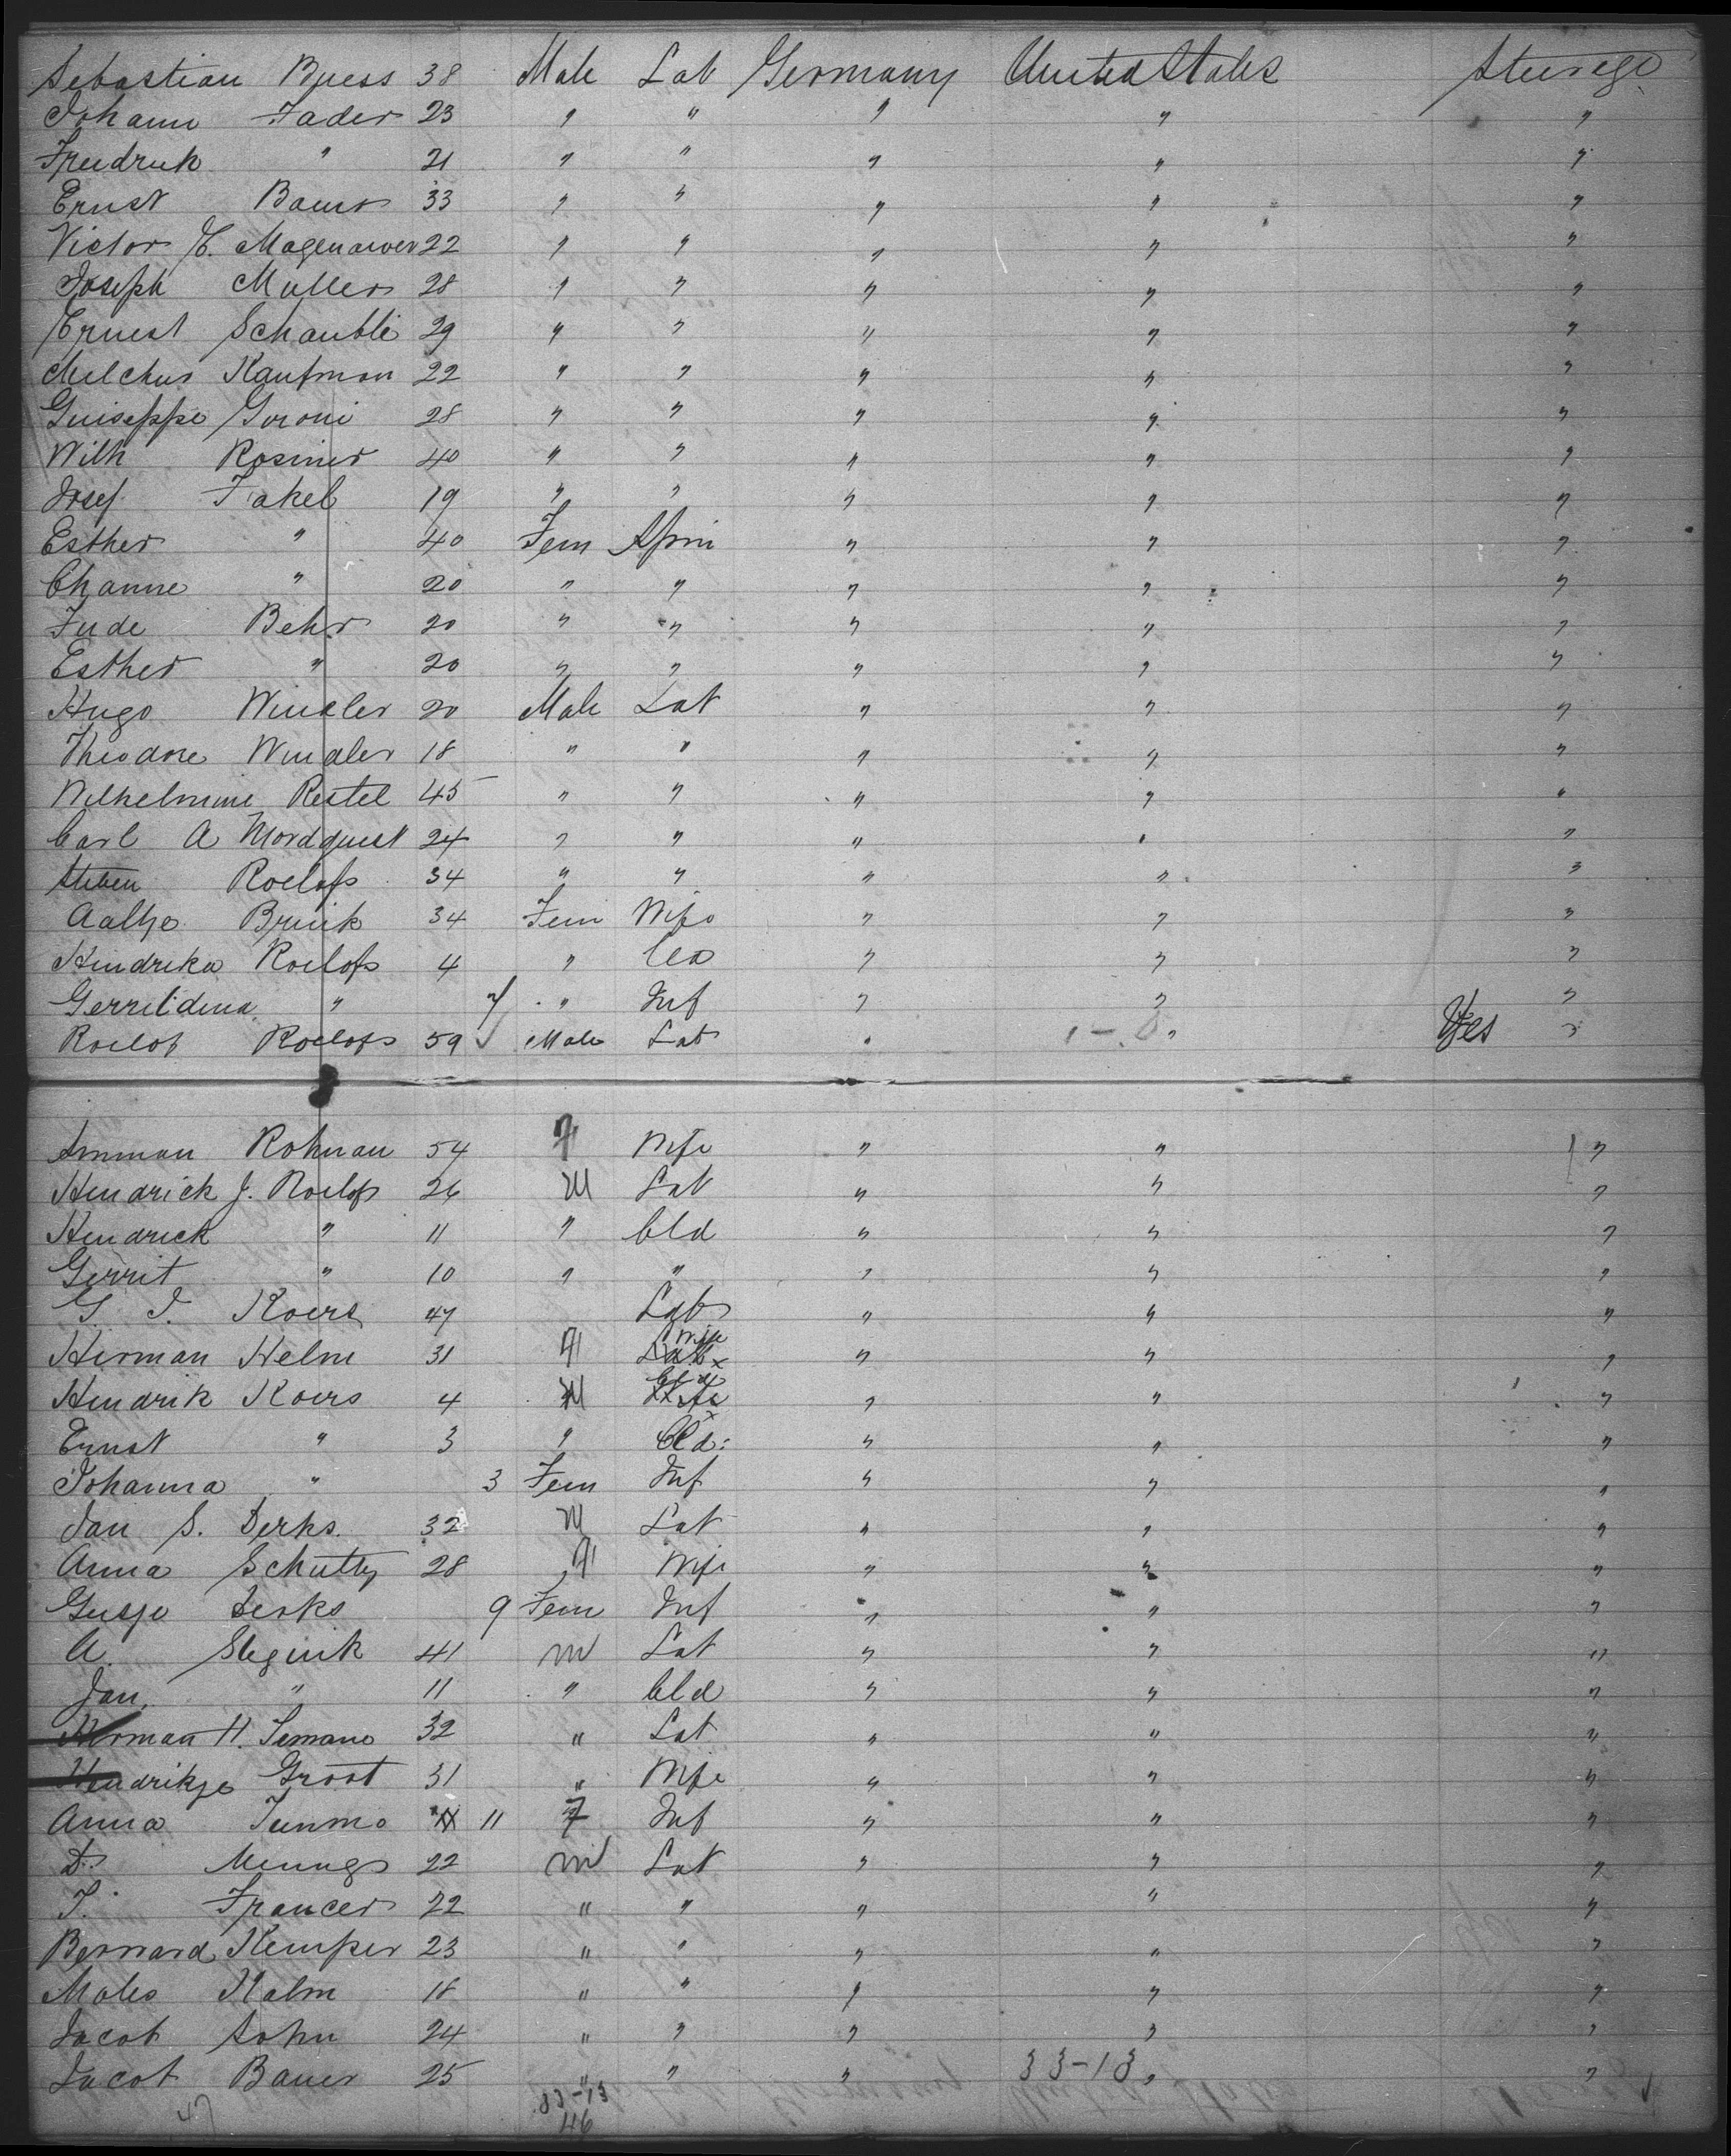 Sebastian Buess 38 Male Lab Germany United States Steerage
Johann Fader 23 " " " " "
Freidrick " 21 " " " " "
Ernst Baur 33 " " " " "
Victor E. Magenauer 22 " " " " "
Joseph Muller 28 " " " " "
Ernest Schaubli 29 " " " " "
Melchus Kaufman 22 " " " " "
Guiseppe Goroni 28 " " " " "
Wilh Rosiner 40 " " " " "
Josef Fakel 19 " " " " "
Esther " 40 Fem Spin " " "
Channe " 20 " " " " "
Jude Behr 20 " " " " "
Esther " 20 " " " " "
Hugo Winkler 20 Male Lab " " "
Theodore Windler 18 " " " " "
Wilhelmine Restel 45 " " " " "
Carl A Nordquest 24 " " " " "
Steben Roelofs 34 " " " " "
Aaltje Brink 34 Fem Wife " " "
Hendrika Roelofs 4 " " "
Gerritdina " 7 " Inf " " "
Roelof Roelofs 59 Male Lab " " Yes "
Rohman 54 F Wife " " "
Hendrick J. Roelofs 26 M Lab " " "
Hendrick " 11 " Cld " " "
Gerrit " 10 " " " " "
G. J. Koers 47 Lab " " "
Herman Helm 31 F Wife " " "
Hendrik Koers 4 M Cld " " "
Ernst " 3 " Cld " " "
Johanna " 3 Fem Inf " " "
Jan S. Derks 32 M Lab " " "
Anna Schutty 28 F Wife " " "
Gesje Derks 9 Fem Inf " " "
A. Slegink 41 M Lab " " "
Jan " 11 " Cld " " "
Herman H. Temano 32 " Lab " " "
Hendrikje Groot 31 " Wife " " "
Anna Tunmo 11 F Inf " " "
D. Menngs 22 M Lab " " "
T. Francer 22 " " " " "
Bernard Kemper 23 " " " " "
Moles Kalm 18 " " " " "
Jacob Sohn 24 " " " " "
Jacob Bauer 25 " " " 33-13 " "
47 33-13
46